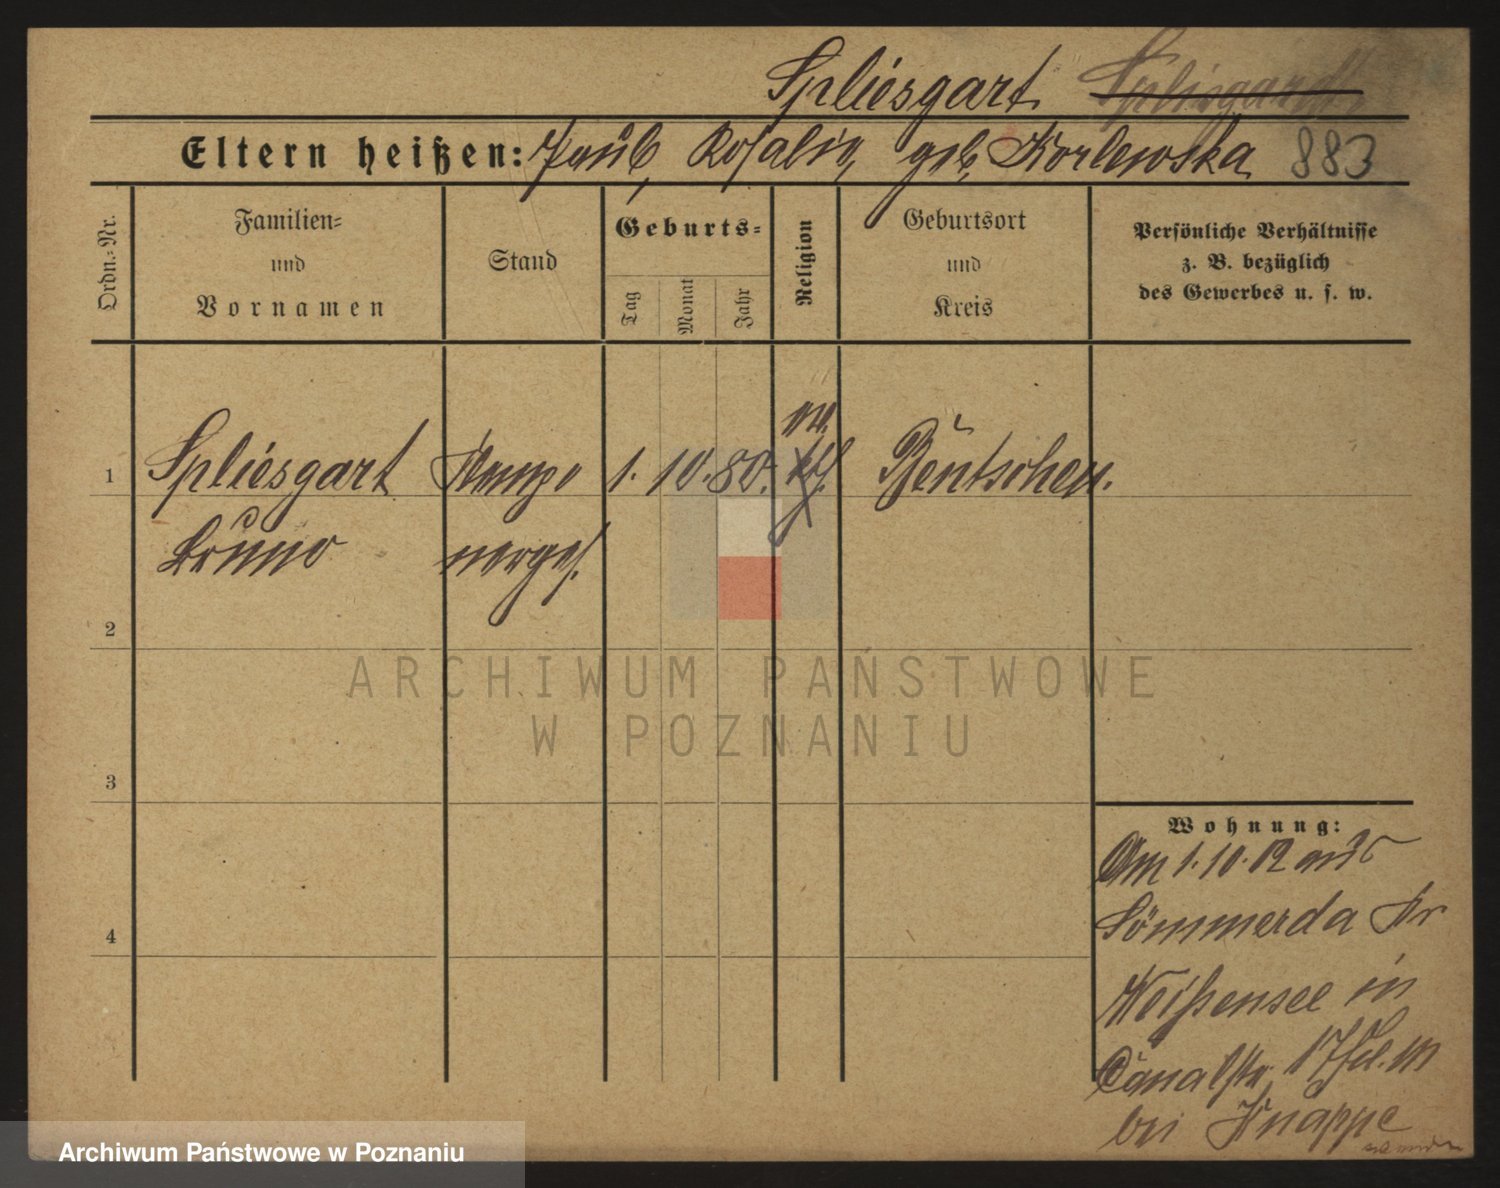 Spliesgart Splisgardt
Eltern heißen: Jakob, Rosalie, geb. Korlewska 883
Ordn.-Nr.
Familien-
und
Vornamen
Stand
Geburts-
Tag
Monat
Jahr
Religion
Geburtsort
und
Kreis
Persönliche Verhältnisse
z. B. bezüglich
des Gewerbes u. s. w.
ev.
1 Spliesgart 1. 10. 80. kth. Bentschen.
Bruno
2
3
4
Wohnung:
Am 1. 10. 12 aus
Sömmerda Kr
Weißensee in
Canalstr. 17 III
bei Knappe
ARCHIWUM PAŃSTWOWE
W POZNANIU
Archiwum Państwowe w Poznaniu